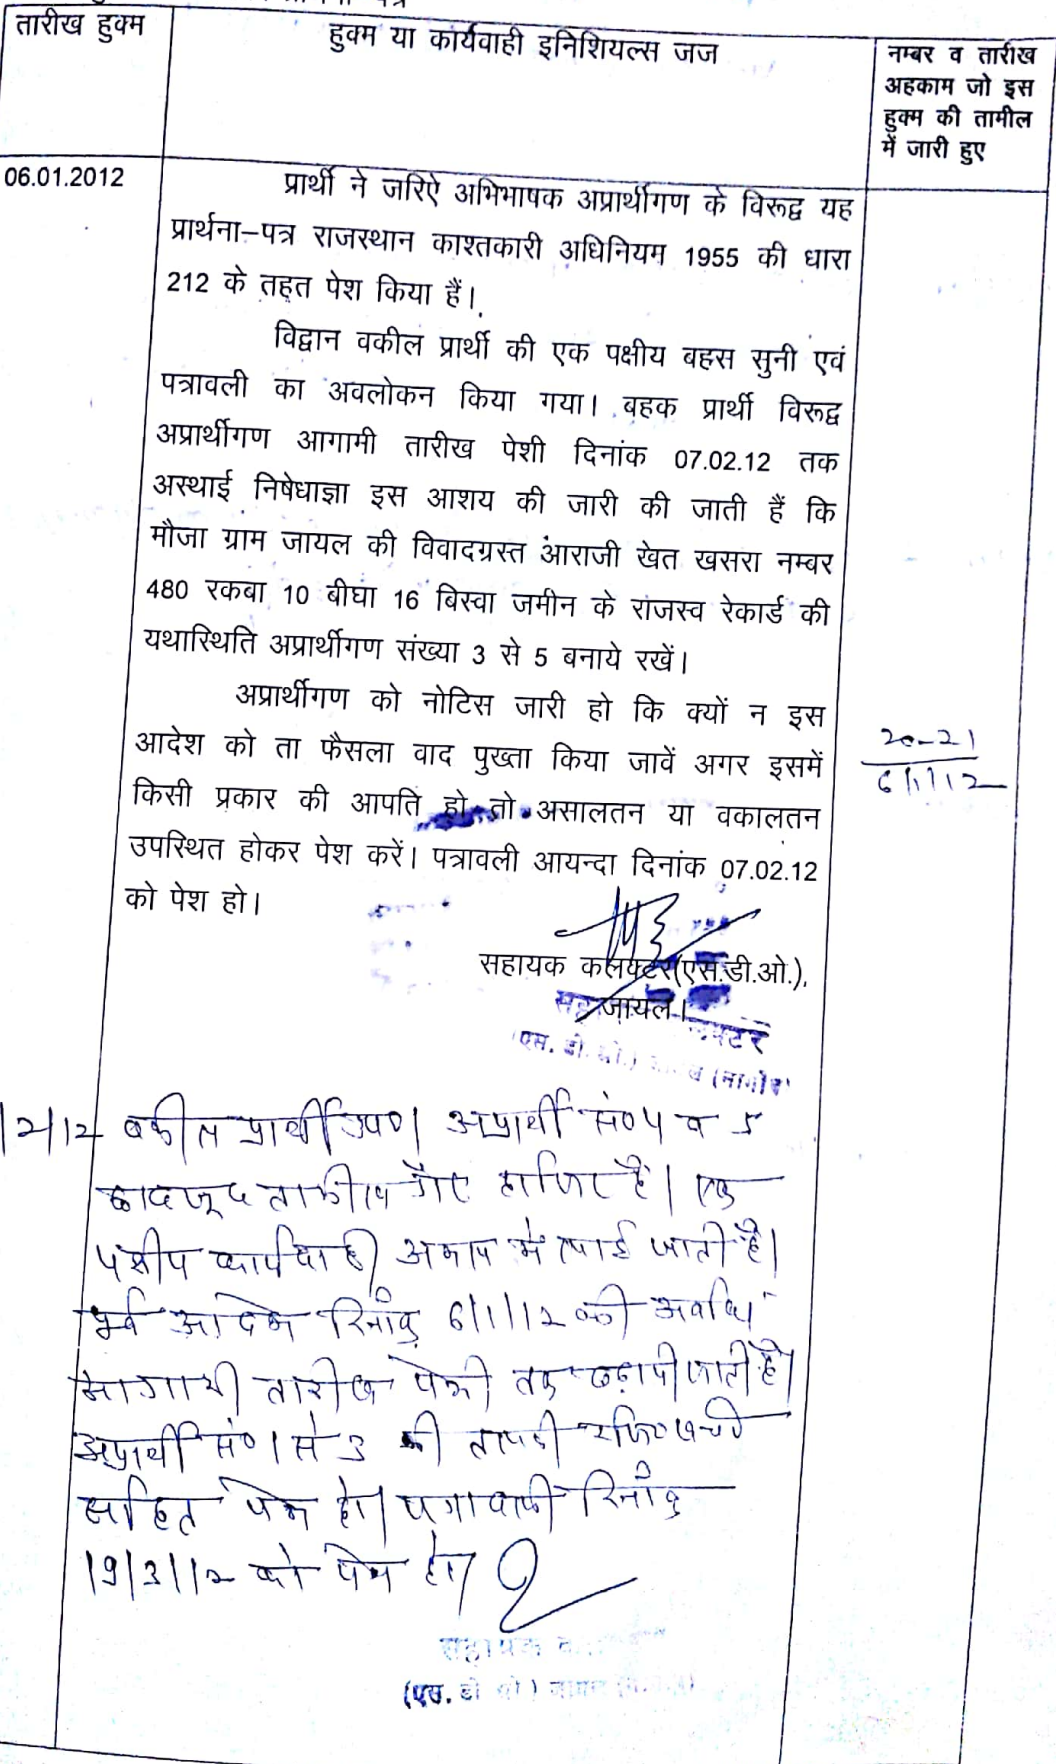 तारीख हुक्म
हुक्म या कार्यवाही इनिशियल्स जज
नम्बर व तारीख
अहकाम जो इस
हुक्म की तामील
में जारी हुए
06.01.2012
प्रार्थी ने जरिऐ अभिभाषक अप्रार्थीगण के विरूद्व यह
प्रार्थना–पत्र राजस्थान काश्तकारी अधिनियम 1955 की धारा
212 के तहत पेश किया हैं।
विद्वान वकील प्रार्थी की एक पक्षीय बहस सुनी एवं
पत्रावली का अवलोकन किया गया। बहक प्रार्थी विरूद्व
अप्रार्थीगण आगामी तारीख पेशी दिनांक 07.02.12 तक
अस्थाई निषेधाज्ञा इस आशय की जारी की जाती हैं कि
मौजा ग्राम जायल की विवादग्रस्त आराजी खेत खसरा नम्बर
480 रकबा 10 बीघा 16 बिस्वा जमीन के राजस्व रेकार्ड की
यथास्थिति अप्रार्थीगण संख्या 3 से 5 बनाये रखें।
अप्रार्थीगण को नोटिस जारी हो कि क्यों न इस
आदेश को ता फैसला वाद पुख्ता किया जावें अगर इसमें
किसी प्रकार की आपति हो तो असालतन या वकालतन
उपस्थित होकर पेश करें। पत्रावली आयन्दा दिनांक 07.02.12
को पेश हो।
20-21
6/1/12
सहायक कलक्टर(एस.डी.ओ.),
जायल।
(एस. डी. ओ.)
/2/12 वकील प्रार्थी उप०। अप्रार्थी सं० 4 व 5
बावजूद तामील गैर हाजिर है। एक
पक्षीय कार्यवाही अमल में लाई जाती है।
पूर्व आदेश दिनांक 6/1/12 की अवधि
आगामी तारीख पेशी तक बढ़ायी जाती है।
अप्रार्थी सं० 1 से 3 की
सहित पेश हो। पत्रावली दिनांक
19/3/12 को पेश हो।
सहायक
(एस. डी ओ) जायल